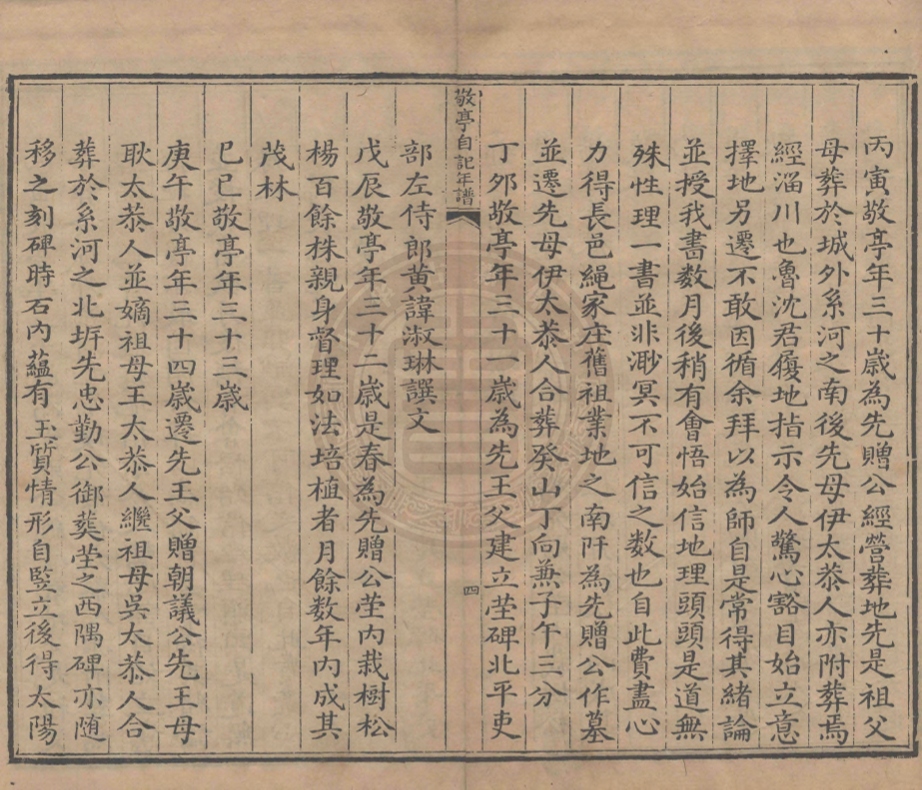 丙寅敬亭年三十歲為先贈公經營葬地先是祖父
母葬於城外系河之南後先母伊太恭人亦附葬焉
經淄川也魯沈君履地指示令人驚心豁目始立意
擇地另遷不敢因循余拜以為師自是常得其緒論
並授我書数月後稍有會悟始信地理頭頭是道無
殊性理一書並非渺冥不可信之数也自此費盡心
力得長邑繩家座舊祖業地之南阡為先贈公作墓
並遷先母伊太恭人合葬癸山丁向兼子午三分
丁夘敬亭年三十一歲為先王父建立塋碑北平吏
敬亭自記年譜
四
部左侍郎黄諱淑琳譔文
戊辰敬亭年三十二歲是春為先贈公塋内栽樹松
楊百餘株親身督理如法培植者月餘数年内成其
茂林
己巳敬亭年三十三歲
庚午敬亭年三十四歲遷先王父贈朝議公先王母
耿太恭人並嫡祖母王太恭人繼祖母吳太恭人合
葬於系河之北坼先忠勤公御葬塋之西隅碑亦随
移之刻碑時石内蘊有玉質情形自竪立後得太陽